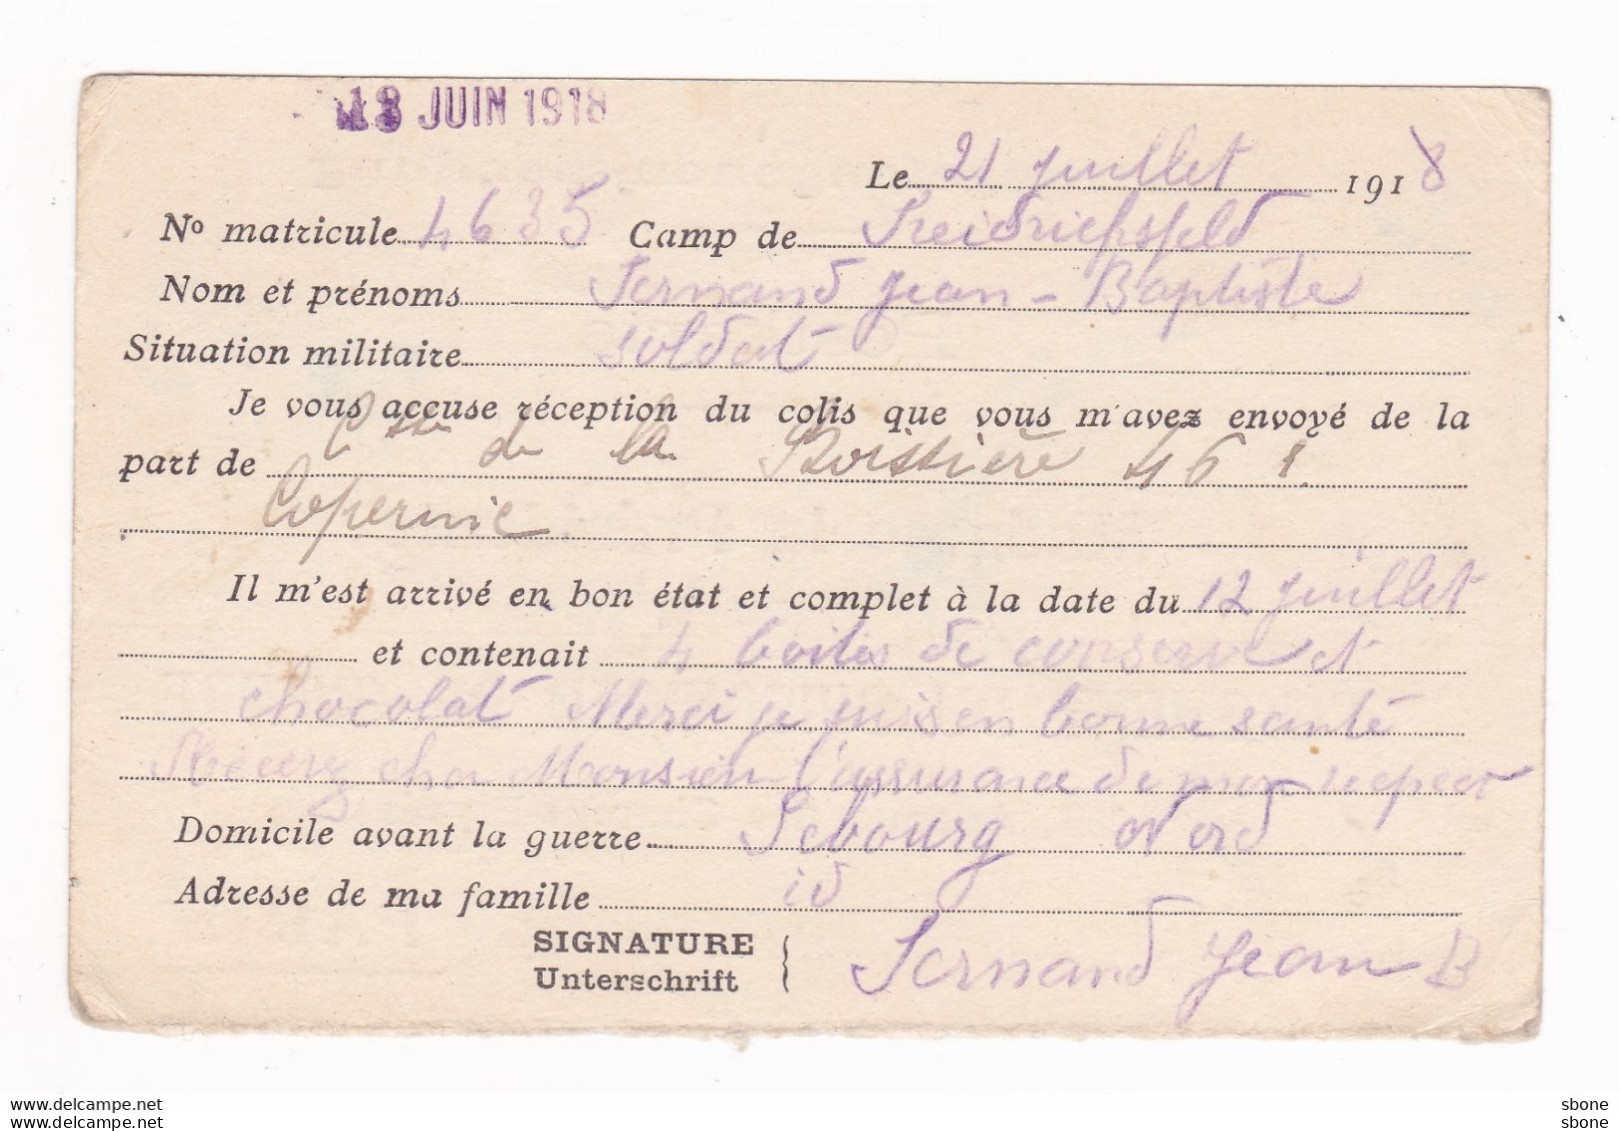 18 JUIN 1918
Le 21 juillet 1918
No matricule 4635 Camp de Freidrichsfeld
Nom et prénoms Fernand Jean-Baptiste
Situation militaire soldat
Je vous accuse réception du colis que vous m'avez envoyé de la
part de Csse de la Boissière 46 1.
Copernic.
Il m'est arrivé en bon état et complet à la date du 12 juillet
et contenait 4 boites de conserve et
chocolat Merci je suis en bonne santé
Recevez cher Monsieur l'assurance de mon respect
Domicile avant la guerre Sebourg Nord
Adresse de ma famille id
SIGNATURE
Unterschrift
Fernand Jean B
delcampe.net
delcampe.net
sbone
sbone